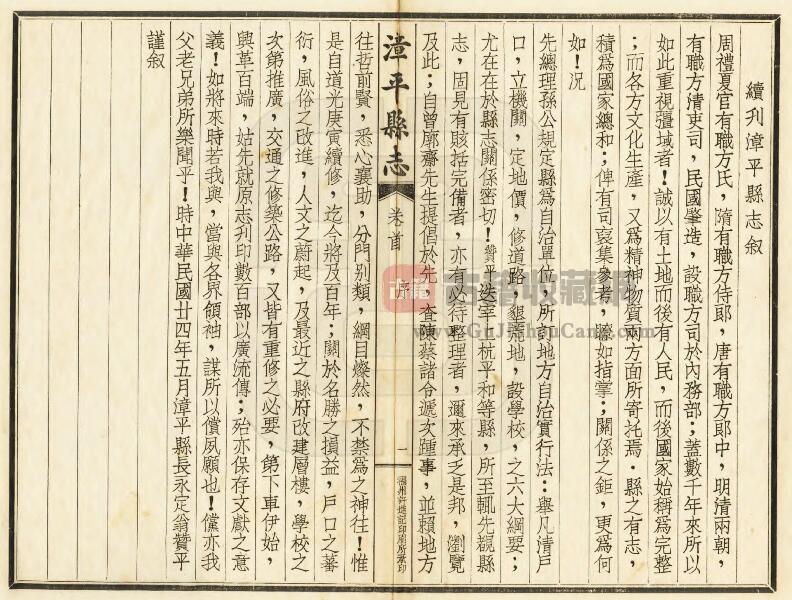 續刊漳平縣志叙
周禮夏官有職方氏，隋有職方侍郎，唐有職方郎中，明清兩朝，
有職方清吏司，民國肇造，設職方司於內務部；蓋數千年來所以
如此重視彊域者！誠以有土地而後有人民，而後國家始稱爲完整
；而各方文化生產，又爲精神物質兩方面所寄托焉·縣之有志，
積爲國家總和；俾有司裒集參考，瞭如指掌；關係之鉅，更爲何
如！況
先總理孫公規定縣爲自治單位，所訂地方自治實行法：舉凡清戶
口，立機關，定地價，修道路，墾荒地，設學校，之六大綱要；
尤在在於縣志關係密切！贊平迭宰上杭平和等縣，所至輒先覩縣
志，固見有賅括完備者，亦有必待整理者，邇來承乏是邦，瀏覽
及此；自曾廓齋先生提倡於先，查陳蔡諸令遞次踵事，並賴地方
漳平縣志
卷首
序
一
福州許造記印刷所承印
往哲前賢，悉心襄助，分門別類，綱目燦然，不禁爲之神往！惟
是自道光庚寅續修，迄今將及百年；關於名勝之損益，戶口之蕃
衍，風俗之改進，人文之蔚起，及最近之縣府改建層樓，學校之
次第推廣，交通之修築公路，又皆有重修之必要，第下車伊始，
興革百端，姑先就原志刋印數百部以廣流傳；殆亦保存文獻之意
義！如將來時若我與，當與各界領袖，謀所以償夙願也！儻亦我
父老兄弟所樂聞乎！時中華民國廿四年五月漳平縣長永定翁贊平
謹叙
古籍收藏網
www.GuJiShouCang.com